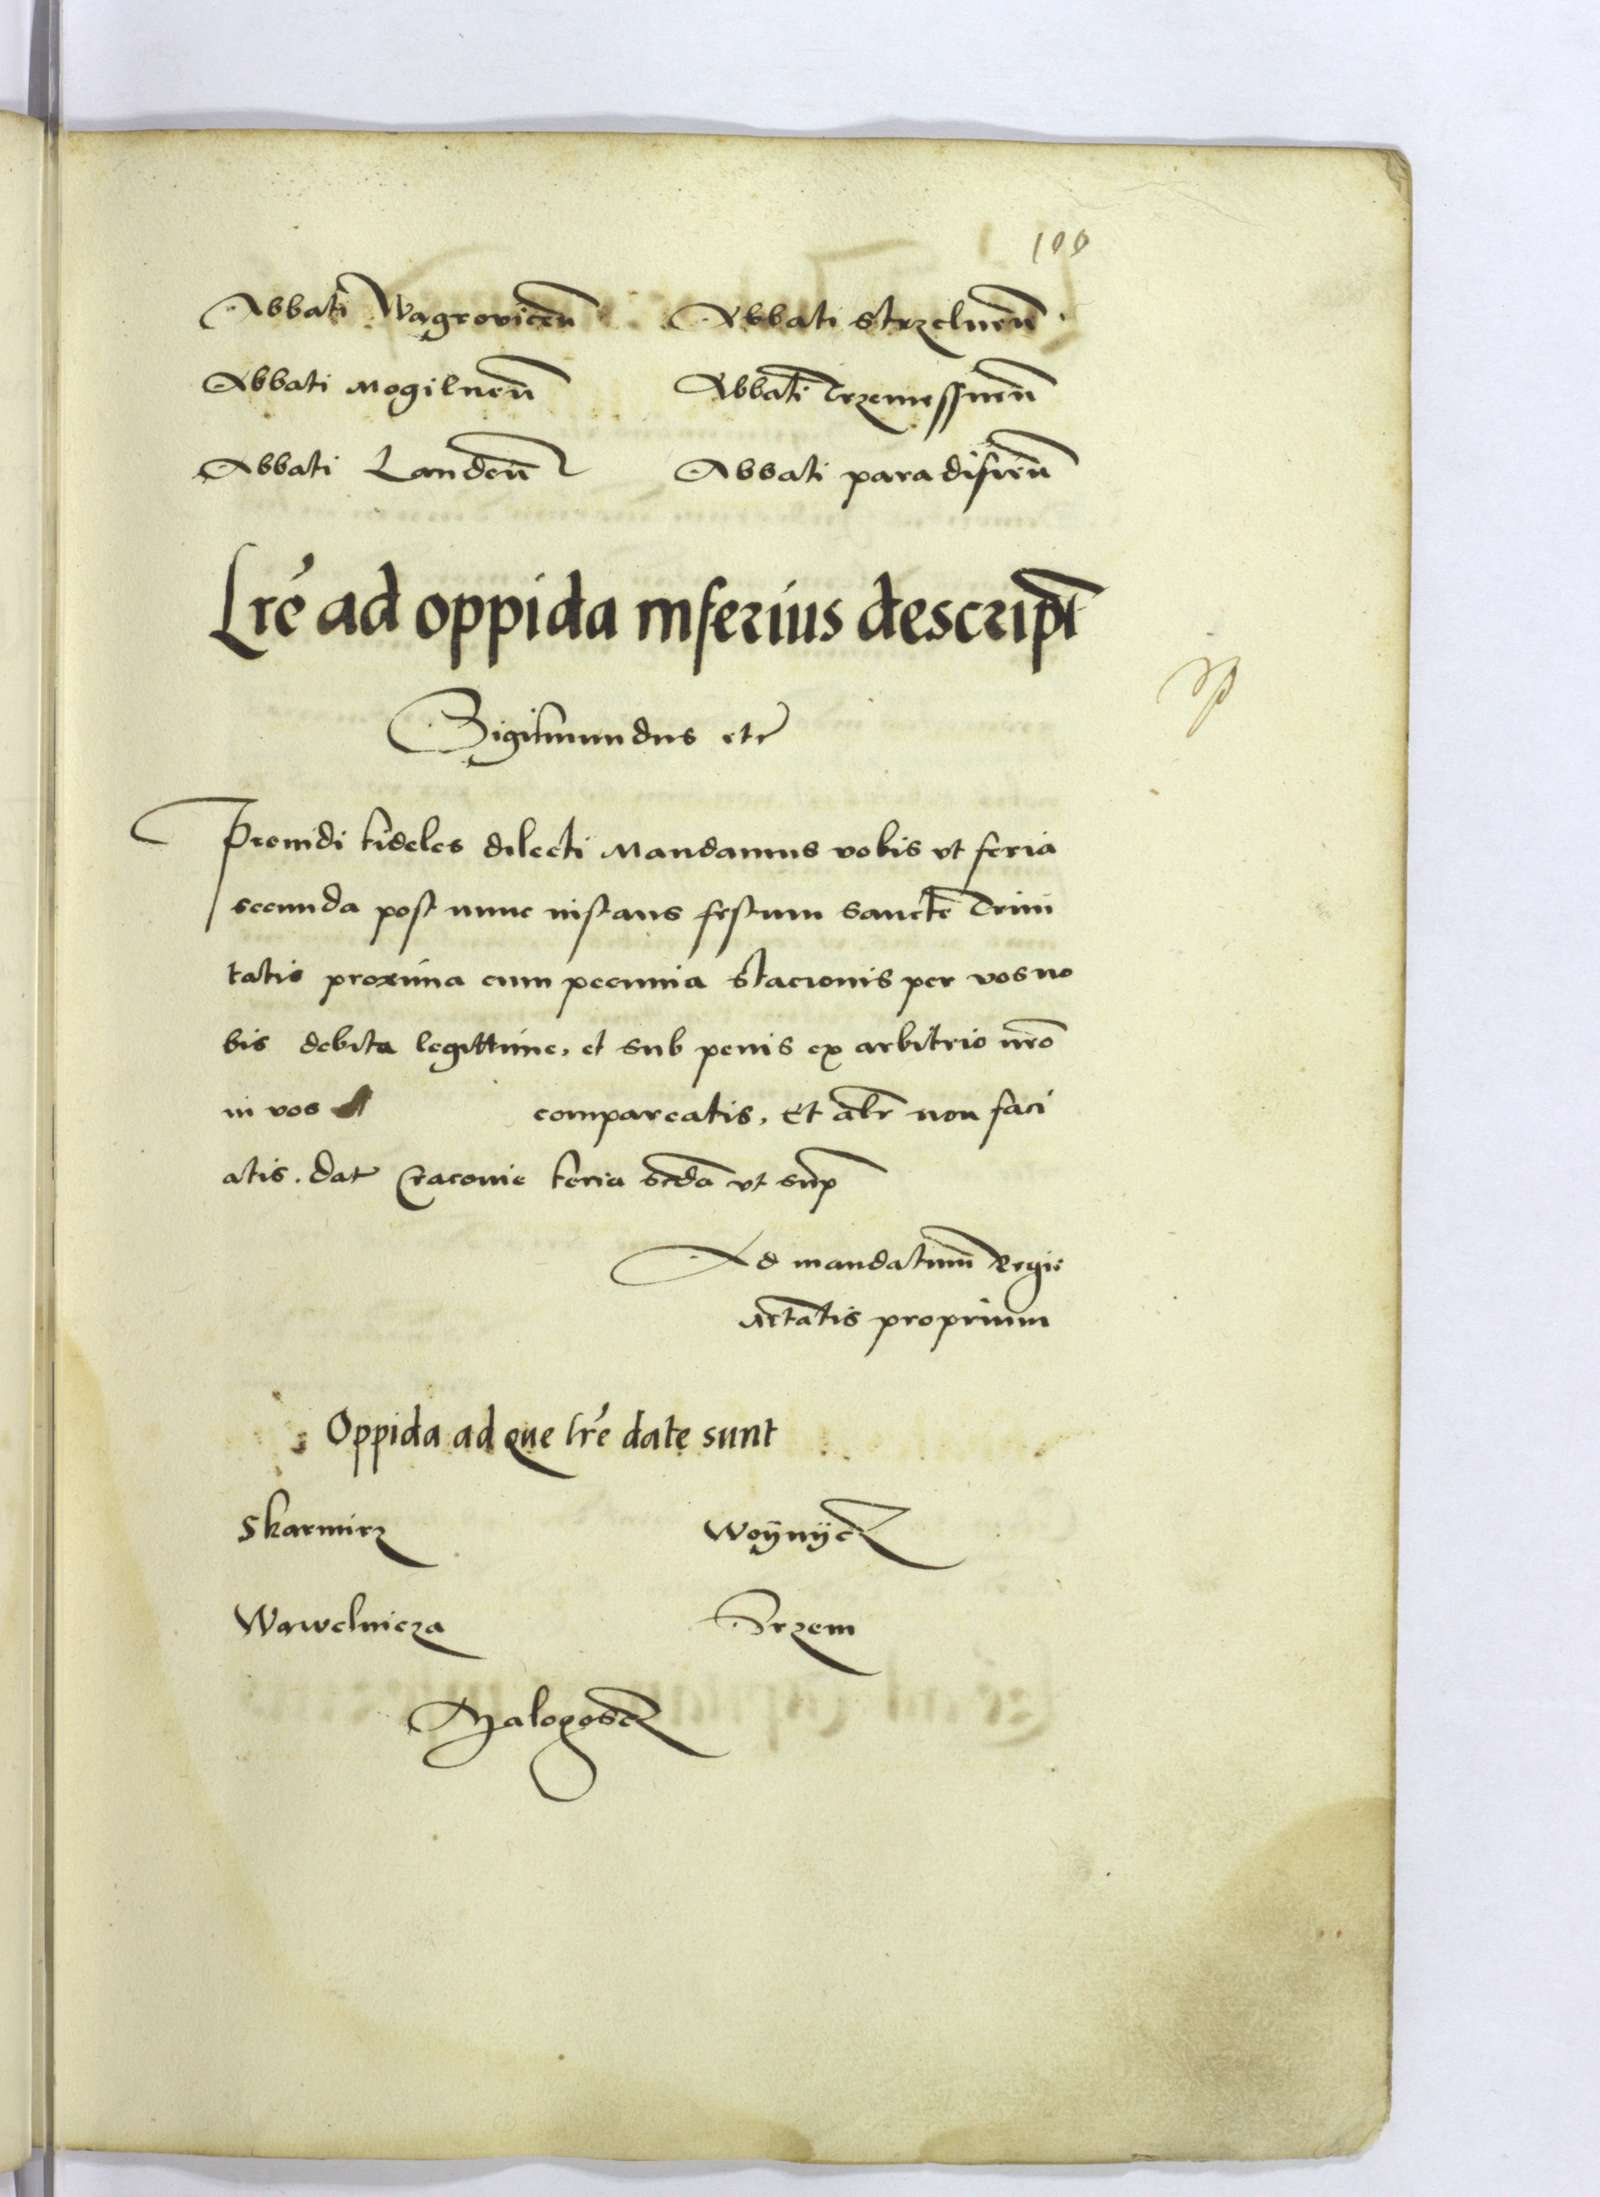 100
Abbati Wagrovicen̄ Abbati Strzelnen̄
Abbati Mogilnen̄ Abbati Trzemessnen̄
Abbati Landen̄ Abbati paradisien̄
Lre̅ ad oppida inferius descript̄
Sigismundus etc
Providi fideles dilecti Mandamus vobis vt feria
secunda post nunc instans festum sancte Trini
tatis proxima cum pecunia stacionis per vos no
bis debita legittime, et sub penis ex arbitrio nr̄o
in vos comparcatis, Et alr̄ non faci
atis. dat Cracovie feria scd̄a vt sup̄
Ad mandatum Regie
Mtātis proprium
Oppida ad que lre̅ date sunt
Skarmirz Woÿnÿcz
Wawelnicza Srzem
Malogoscz